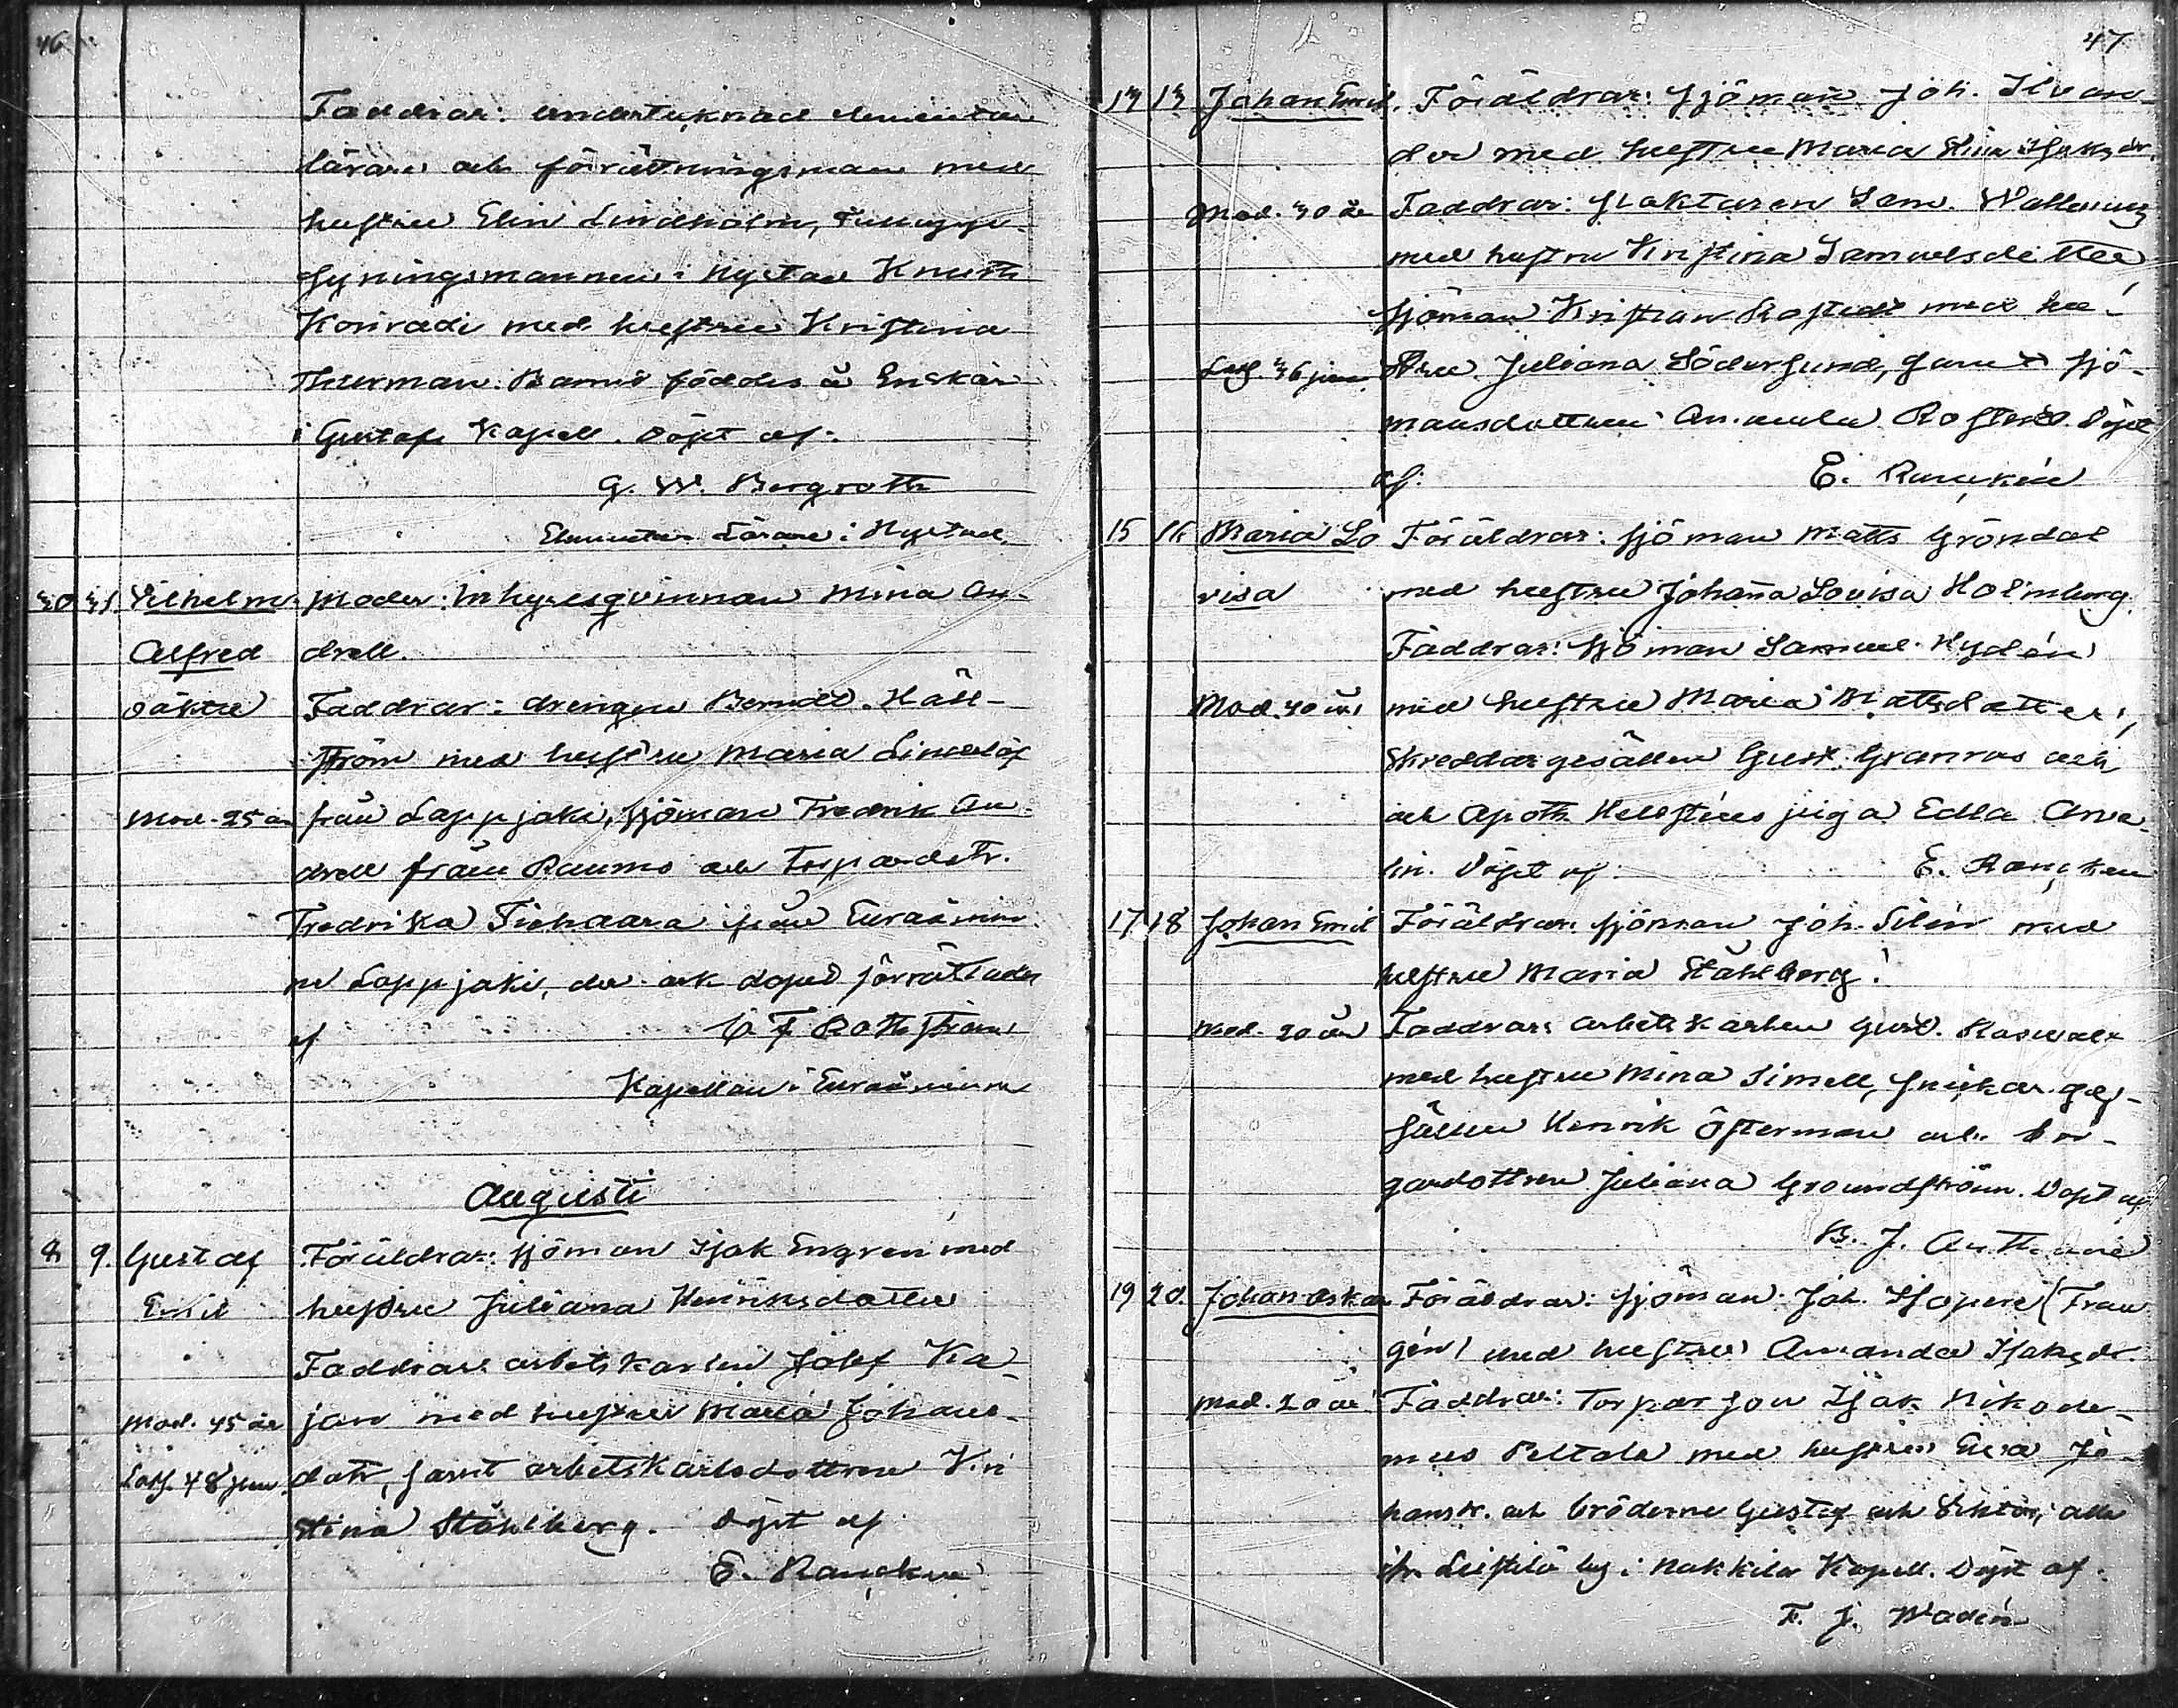 46
Faddrar: undertecknad elementar
lärare och förrättningsman med
hustru Elin Lindholm, tulluppsyningsmannen i Nystad Knuth
Konradi med hustru Kristina
Thuerman. Barnet föddes å Enskär
i Gustafs Kapell. Döpt af:
G. W. Bergroth
Elementar Lärare i Nystad.
30 31 Vilhelm Moder: Inhyseqvinnan Mina An-
Alfred drell.
oäkta Faddrar: drengen Berndt Häll-
ström med hustru Maria Lindelöf
Mod. 25 år från Lappjoki, sjöman Fredrik An-
drell från Raumo och torpardtr.
Fredrika Tiehaara från Euraåmin-
ne Lappjoki, der ock dopet förrättades
af C F Rothström
Kapellan i Euraåminne
Augusti
8 9. Gustaf Föräldrar: sjöman Isak Engren med
Emil hustru Juliana Henriksdotter
Faddrar: arbetskarlen Josef Ka-
Mod. 45 år jan med hustru Maria Johans-
Lasf. 48 jun. dotr, samt arbetskarlsdottren Kri
stina Ståhlberg. Döpt af
E. Rancken
47
13 13 Johan Emil. Föräldrar: sjöman Joh. Silvan-
der med hustru Maria Stina Isaksdr.
Mod. 30 år Faddrar: slaktaren Sam. Wallenius
med hustru Kristina Samuelsdotter,
sjöman Kristian Rostedt med hu-
Lasf. 36 jun. stru Juliana Södersund, samt sjö-
mansdottren Amanda Rostedt. Döpt
af: E. Rancken
15 16 Maria Lo Föräldrar: sjöman Matts Gröndal
visa med hustru Johanna Lovisa Holmberg.
Faddrar: sjöman Samuel Nydén
Mod. 40 år med hustru Maria Mattsdotter,
skreddargesällen Gust. Granroos och
och Apoth. Hellsténs piga Edla Ama-
lin. Döpt af: E. Rancken
17 18 Johan Emil Föräldrar: sjöman Joh. Silén med
hustru Maria Ståhlberg.
Mod. 20 år Faddrar: arbetskarlen Gust.
med hustru Mina Simell, snickar ge-
sällen Henrik Österman och bor-
gardottren Juliana Groundström. Döpt af
B. J.
19 20. Johan Oskar Föräldrar: sjöman Joh. (Fran
gén) med hustru Amanda Isaksdr.
Mod. 20 år Faddrar: Torparson Isak Nikode-
mus Peltala med hustru Eva Jo-
hansdr. och bröderne Gustaf och Viktor, alla
ifr. Leistilä by i Nakkila Kapell. Döpt af
F. J. Wadén